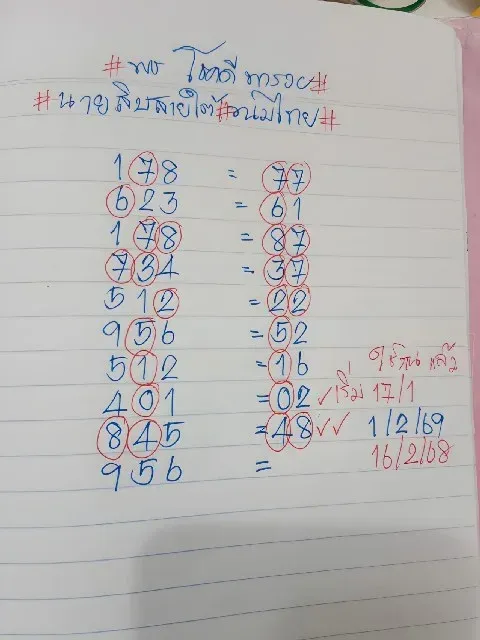 #พร โชคดี พารวย#
#นายสิบสายใต้#วนมไทย#
178 = 77
623 = 61
178 = 87
734 = 37
512 = 22
956 = 52
512 = 16 แล้ว
401 = 02 ✓เริ่ม 17/1
845 = 48 ✓✓ 1/2/69
956 = 16/2/68